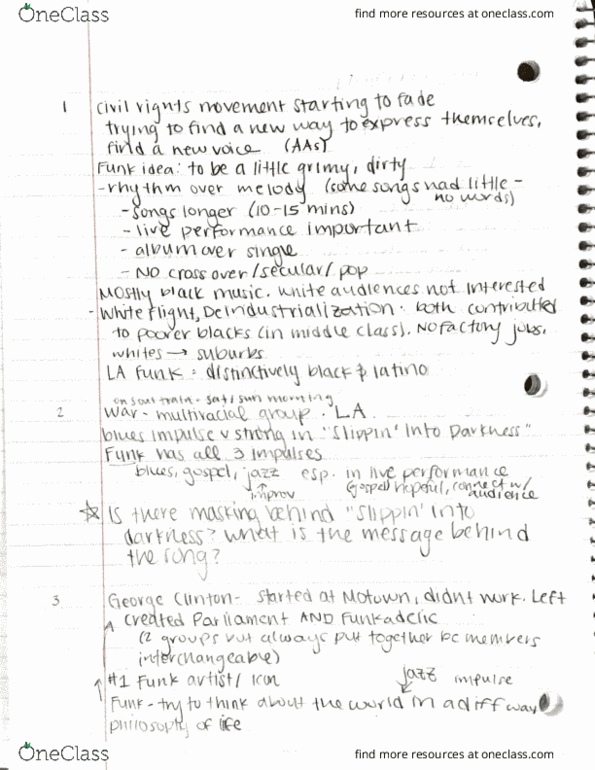 OneClass
find more resources at oneclass.com
1 Civil rights movement starting to fade
trying to find a new way to express themselves,
find a new voice (AAs)
Funk idea: to be a little grimy, dirty
- rhythm over melody (some songs had little -
no words)
- songs longer (10-15 mins)
- live performance important
- album over single
- NO cross over/secular/pop
Mostly black music. white audiences not interested
- White Flight, Deindustrialization: both contributed
to poorer blacks (in middle class). No factory jobs,
whites → suburbs
LA Funk: distinctively black & latino
on soul train - sat/sun morning
2 War - multiracial group. LA
blues impulse v strong in "Slippin' Into Darkness"
Funk has all 3 impulses
blues, gospel, jazz esp. in live performance
↑ improv Gospel hopeful, connect w/
audience
☆ Is there masking behind "Slippin' into
darkness? What is the message behind
the song?
3 George Clinton - started at Motown, didnt work. Left
created Parliament AND Funkadelic
(2 groups but always put together bc members
interchangeable)
#1 Funk artist/icon jazz impulse
Funk - try to think about the world in a diff way
philosophy of life
OneClass
find more resources at oneclass.com